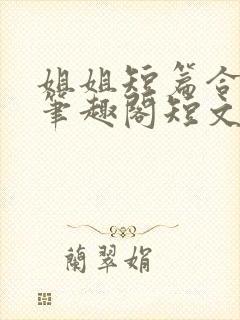 姐姐短篇合
笔趣阁短文
蘭翠娟